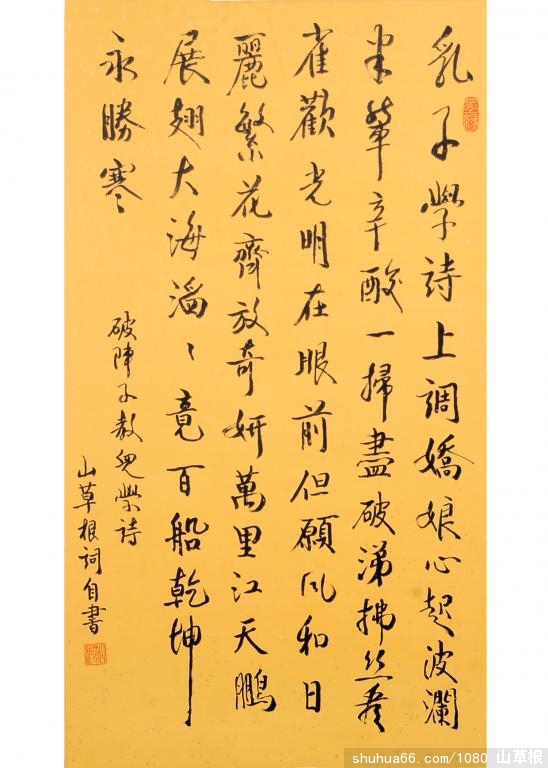 乳子學詩上調嬌娘心起波瀾
半輩辛酸一掃盡破涕拂
雀歡光明在眼前但願风和日
麗繁花齊放奇妍萬里江天鵬
展翅大海滔〻竟百船乾坤
永勝寒
破陣子教兒學詩
山草根詞自書
shuhua66.com/1080 山草根